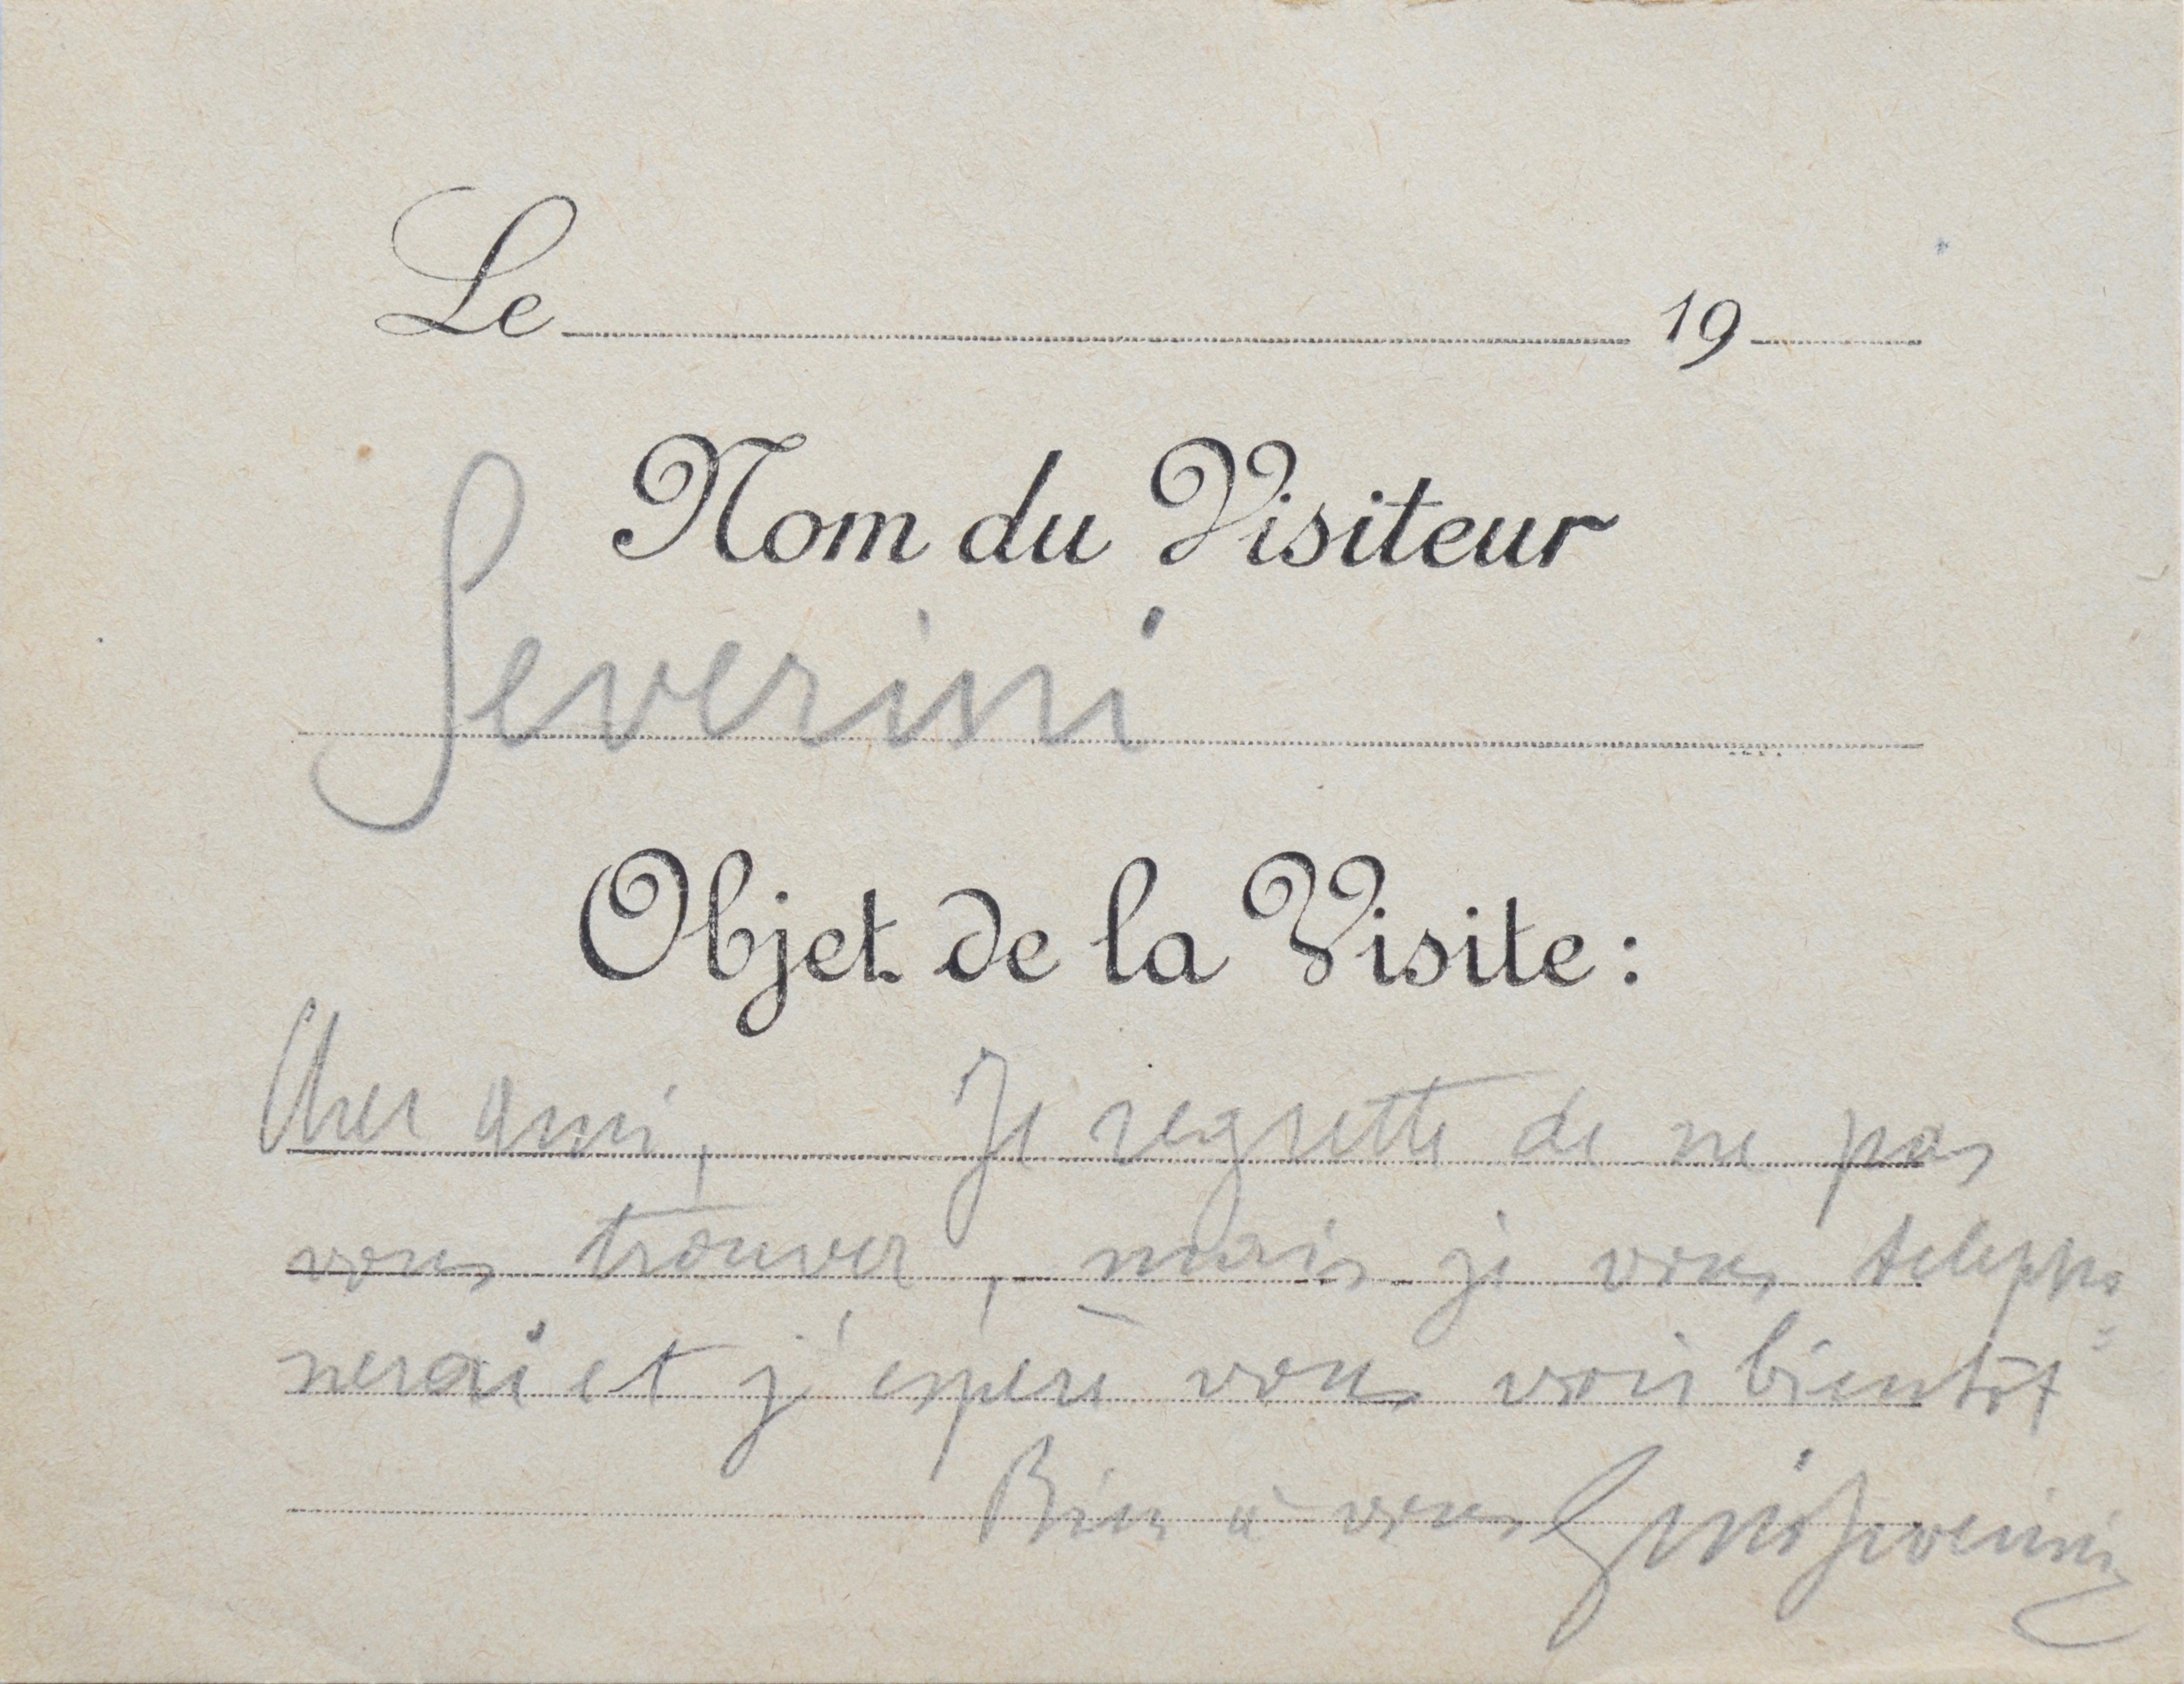 Le 19
Nom du Visiteur
Severini
Objet de la Visite :
Cher ami, Je regrette de ne pas
vous trouver, mais je vous telepho=
nerai et j'espère vous voir bientôt
Bien à vous Gino Severini